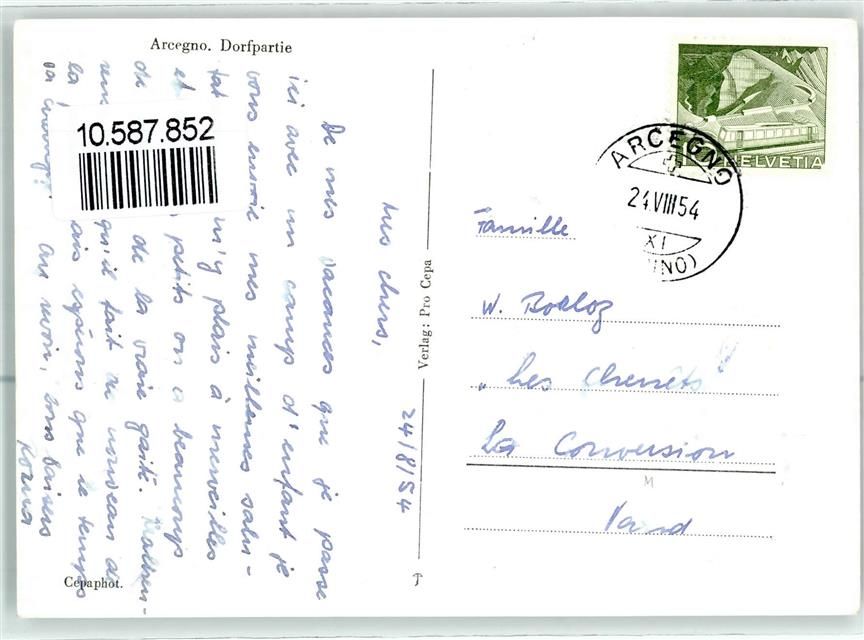 Arcegno. Dorfpartie
10.587.852
24/8/54
Mes chers,
De mes vacances que je passe
ici avec un camp d'enfant je
vous envoie mes meilleures salu-
tat
m'y plais à merveilles
et petits on a beaucoup
de de la vraie gaité. Malheu-
reu qu'il fait de nouveau de
la ais espérons que le temps
va changer. Au revoir, bons baisers
Cepaphot.
Verlag: Pro Cepa
HELVETIA
ARCEGNO
24 VIII 54
XI
NO)
Famille
W. Borloz
"Les Chenêts"
La Conversion
Vaud